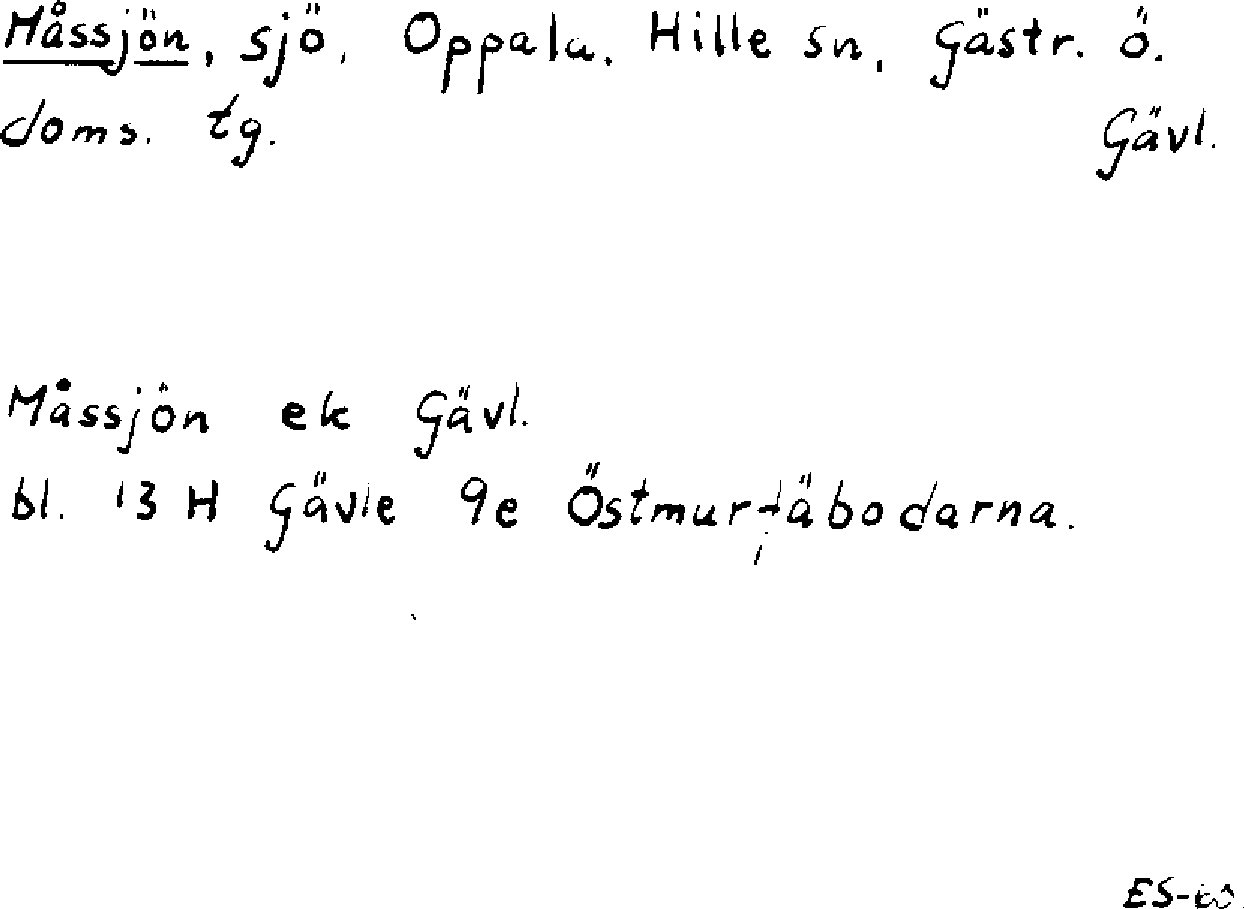 Måssjön, sjö, Oppala, Hille sn, Gästr. ö.
doms. tg. Gävl.
Måssjön ek Gävl.
bl. 13 H Gävle 9e Östmurtäbodarna.